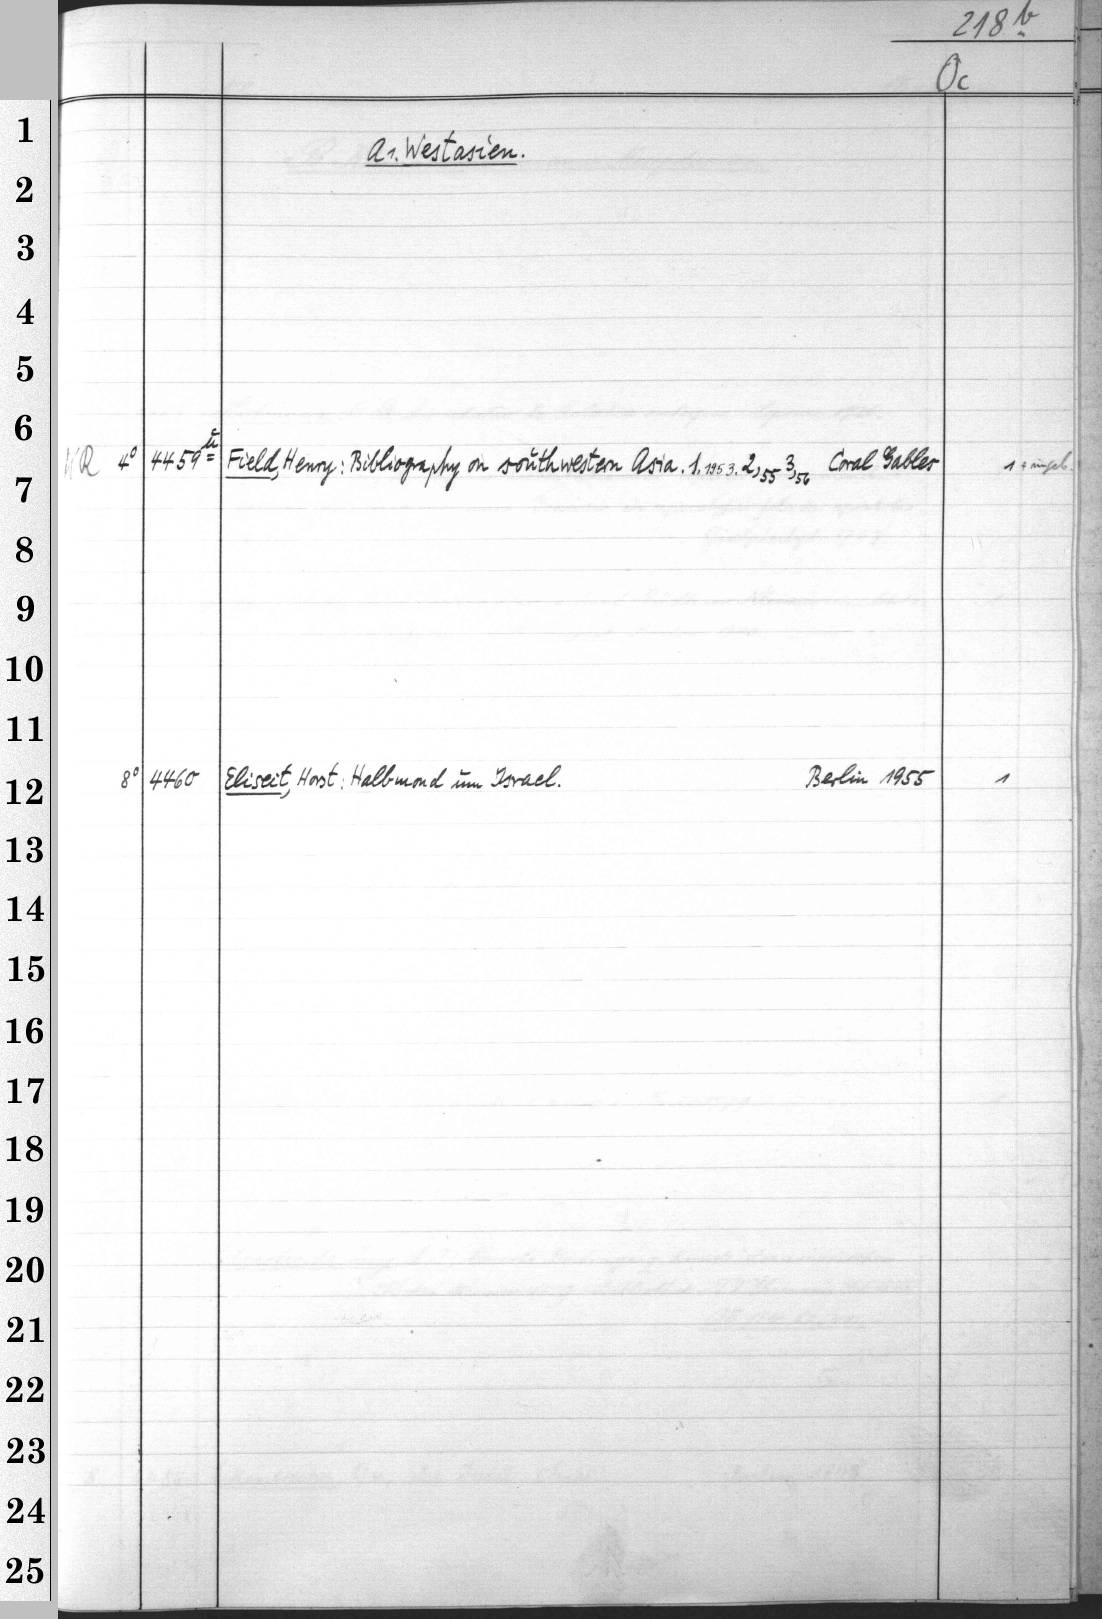 218 b
Oc
1
A1. Westasien.
2
3
4
5
6
7
R 4° 4459 ü Field, Henry: Bibliography on southwestern Asia. 1, 1953. 2, 55 3, 56 Coral Gables 1 + ungeb.
8
9
10
11
12
8° 4460 Eliseit, Horst: Halbmond um Israel. Berlin 1955 1
13
14
15
16
17
18
19
20
21
22
23
24
25